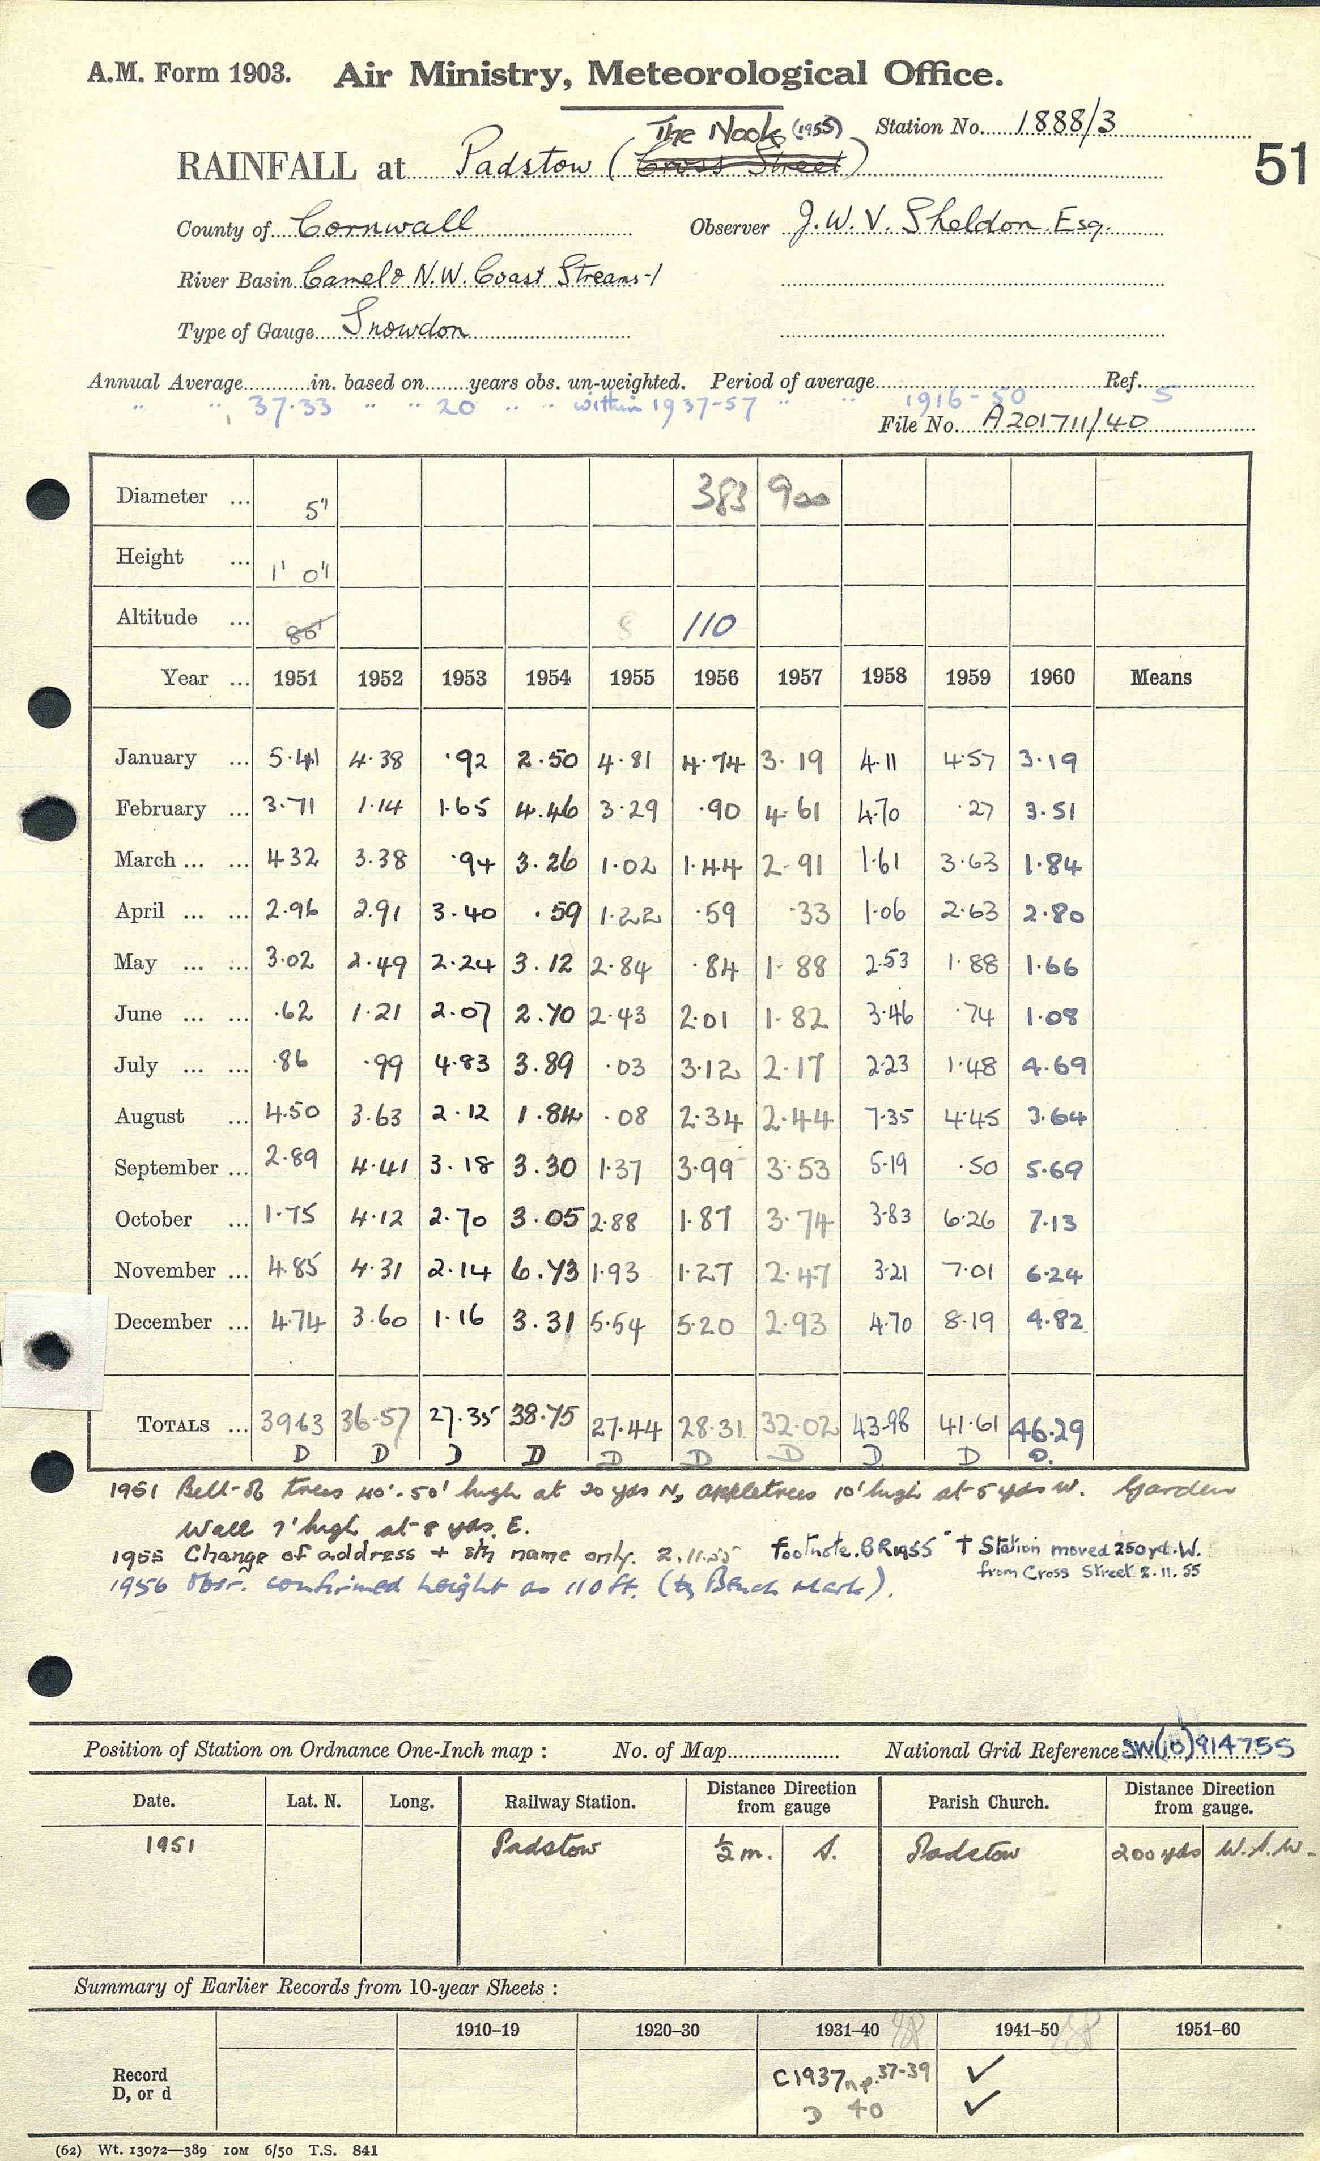 A.M. Form 1903. Air Ministry, Meteorological Office.
The Nook (1955) Station No. 1888/3
RAINFALL at Padstow (Cross Street) 51
County of Cornwall Observer J.W.V. Sheldon Esq.
River Basin Camel & N.W. Coast Streams-1
Type of Gauge Snowdon
Annual Average in. based on years obs. un-weighted. Period of average Ref.
" " 37.33 " " 20 " " within 1937-57 " " 1916-50 5
File No. A201711/40
Diameter ... 5" 383 900
Height ... 1' 0"
Altitude ... 86' 8 110
Year ... 1951 1952 1953 1954 1955 1956 1957 1958 1959 1960 Means
January ... 5.41 4.38 .92 2.50 4.81 4.74 3.19 4.11 4.57 3.19
February ... 3.71 1.14 1.65 4.46 3.29 .90 4.61 4.70 .27 3.51
March ... ... 4 32 3.38 .94 3.26 1.02 1.44 2.91 1.61 3.63 1.84
April ... ... 2.96 2.91 3.40 .59 1.22 .59 .33 1.06 2.63 2.80
May ... ... 3.02 2.49 2.24 3.12 2.84 .84 1.88 2.53 1.88 1.66
June ... ... .62 1.21 2.07 2.70 2.43 2.01 1.82 3.46 .74 1.08
July ... ... .86 .99 4.83 3.89 .03 3.12 2.17 2.23 1.48 4.69
August ... 4.50 3.63 2.12 1.84 .08 2.34 2.44 7.35 4.45 3.64
September ... 2.89 4.41 3.18 3.30 1.37 3.99 3.53 5.19 .50 5.69
October ... 1.75 4.12 2.70 3.05 2.88 1.87 3.74 3.83 6.26 7.13
November ... 4.85 4.31 2.14 6.73 1.93 1.27 2.47 3.21 7.01 6.24
December ... 4.74 3.60 1.16 3.31 5.54 5.20 2.93 4.70 8.19 4.82
TOTALS ... 39 63 36.57 27.35 38.75 27.44 28.31 32.02 43.98 41.61 46.29
D D D D D D D D D D.
1951 Belt of trees 40'-50' high at 20 yds N, appletrees 10' high at 5 yds W. Garden
Wall 7' high at 8 yds. E.
1955 Change of address + stn name only. 2.11.55 Footnote. BR1955 † Station moved 250yd. W.
from Cross Street 2.11.55
1956 Obsr. confirmed height as 110 ft. (by Bench Mark).
Position of Station on Ordnance One-Inch map : No. of Map National Grid Reference SW(10)914755
Date. Lat. N. Long. Railway Station. Distance Direction from gauge Parish Church. Distance Direction from gauge.
1951 Padstow ½ m. S. Padstow 200 yds W.S.W.
Summary of Earlier Records from 10-year Sheets :
1910–19 1920–30 1931–40 1941–50 1951–60
Record C1937 n.p. 37-39 ✓
D, or d D 40 ✓
(62) Wt. 13072—389 10M 6/50 T.S. 841